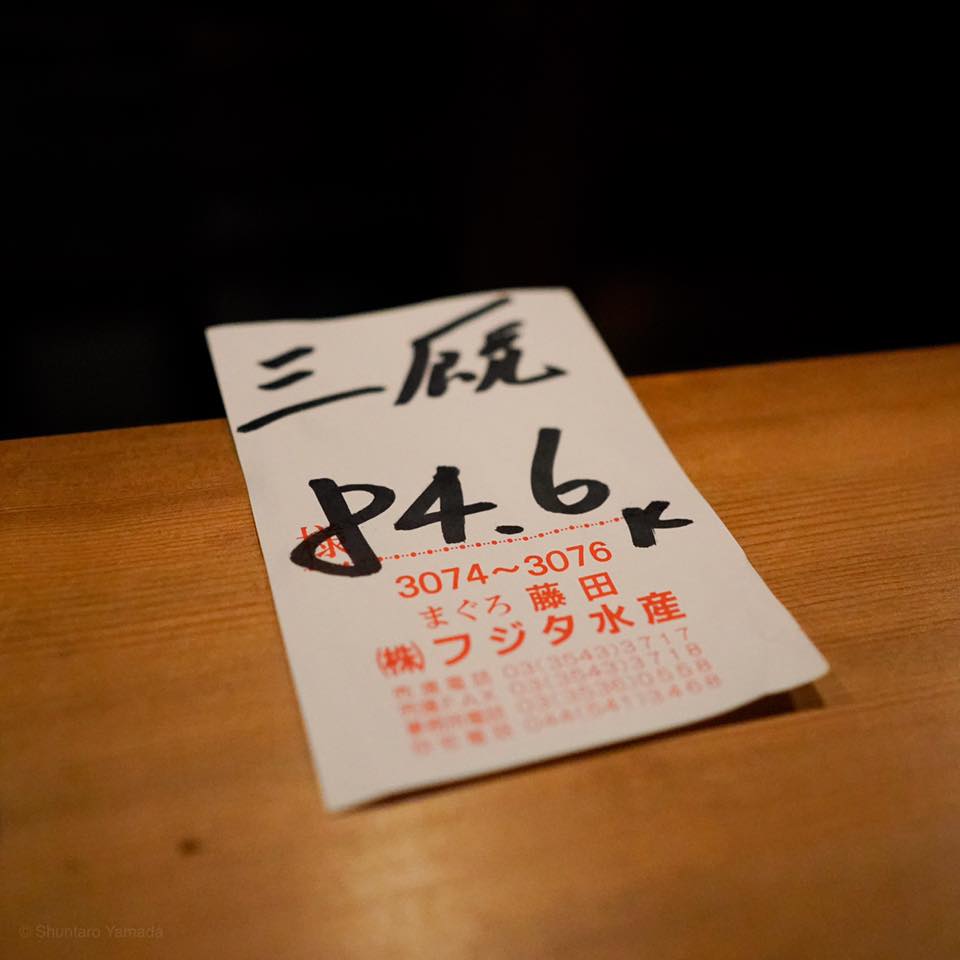 三厩
84.6K
様
3074〜3076
まぐろ 藤田
㈱フジタ水産
市場電話 03(3543)3717
市場FAX 03(3543)3718
事務所電話 03(3536)0558
住宅電話 044(541)3468
© Shuntaro Yamada